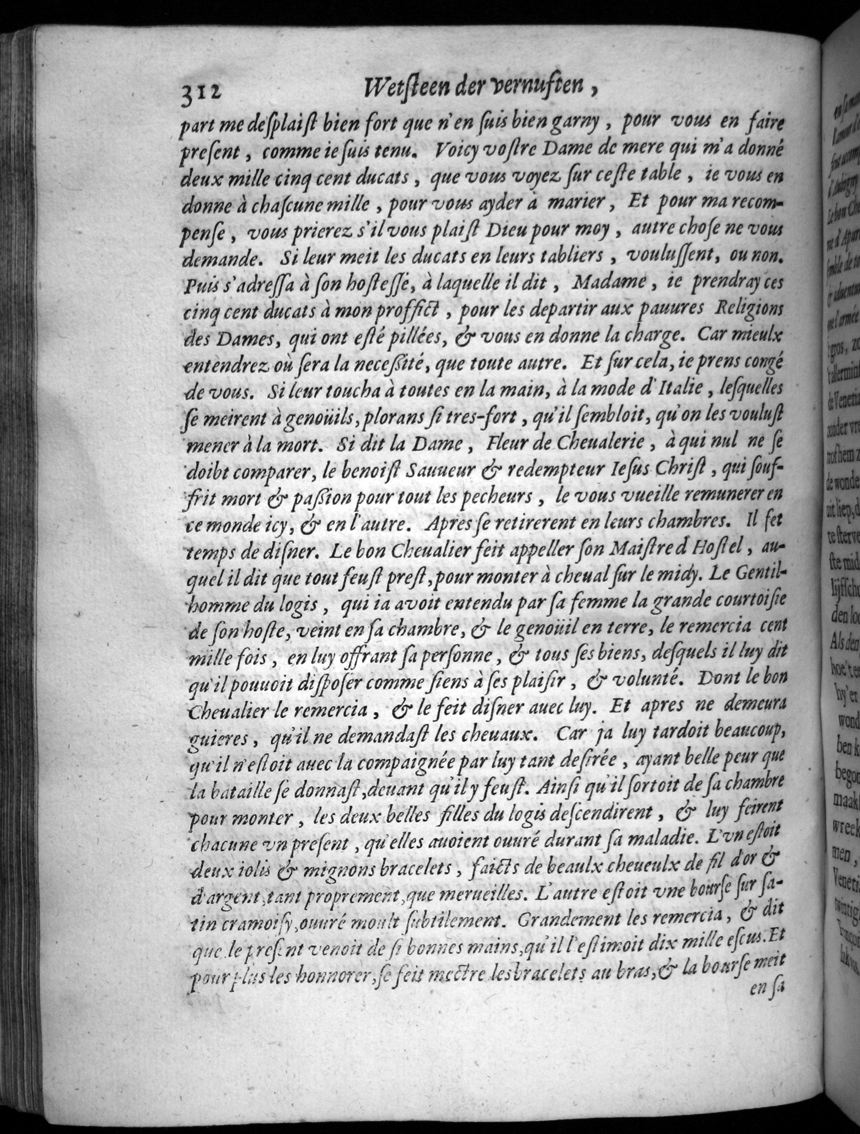 312 Wetſteen der vernuften ,
part me deſplaiſt bien fort que n'en ſuis bien garny , pour vous en faire
preſent , comme ie ſuis tenu. Voicy voſtre Dame de mere qui m'a donné
deux mille cinq cent ducats , que vous voyez ſur ceſte table , ie vous en
donne à chaſcune mille , pour vous ayder à marier , Et pour ma recom-
penſe , vous prierez s'il vous plaiſt Dieu pour moy , autre choſe ne vous
demande. Si leur meit les ducats en leurs tabliers , vouluſſent, ou non.
Puis s'adreſſa à ſon hoſteſſe, à laquelle il dit , Madame , ie prendray ces
cinq cent ducats à mon proffict , pour les departir aux pauures Religions
des Dames, qui ont eſté pillées, & vous en donne la charge. Car mieulx
entendrez où ſera la neceſsité, que toute autre. Et ſur cela, ie prens congé
de vous. Si leur toucha à toutes en la main, à la mode d'Italie , leſquelles
ſe meirent à genoüils, plorans ſi tres-fort , qu'il ſembloit, qu'on les vouluſt
mener à la mort. Si dit la Dame , Fleur de Cheualerie , à qui nul ne ſe
doibt comparer, le benoiſt Sauueur & redempteur Ieſus Chriſt , qui ſouf-
frit mort & paſsion pour tout les pecheurs , le vous vueille remunerer en
ce monde icy, & en l'autre. Apres ſe retirerent en leurs chambres. Il fet
temps de diſner. Le bon Cheualier feit appeller ſon Maiſtre d Hoſtel , au-
quel il dit que tout feuſt preſt, pour monter à cheual ſur le midy. Le Gentil-
homme du logis , qui ia avoit entendu par ſa femme la grande courtoiſie
de ſon hoſte, veint en ſa chambre, & le genoüil en terre, le remercia cent
mille fois , en luy offrant ſa perſonne , & tous ſes biens, deſquels il luy dit
qu'il pouuoit diſpoſer comme ſiens à ſes plaiſir , & volunté. Dont le bon
Cheualier le remercia , & le feit diſner auec luy. Et apres ne demeura
guieres , qu'il ne demandaſt les cheuaux. Car ja luy tardoit beaucoup,
qu'il n'eſtoit auec la compaignée par luy tant deſirée , ayant belle peur que
la bataille ſe donnaſt, deuant qu'il y feuſt. Ainſi qu'il ſortoit de ſa chambre
pour monter , les deux belles filles du logis deſcendirent , & luy feirent
chacune vn preſent , qu'elles auoient ouuré durant ſa maladie. L'vn eſtoit
deux iolis & mignons bracelets , faicts de beaulx cheueulx de fil d'or &
d'argent, tant proprement, que merueilles. L'autre eſtoit vne bourſe ſur ſa-
tin cramoiſy, ouuré moult ſubtilement. Grandement les remercia , & dit
que le preſent venoit de ſi bonnes mains, qu'il l'eſtimoit dix mille eſcus. Et
pour plus les honnorer, ſe feit mectre les bracelets au bras, & la bourſe meit
en ſa